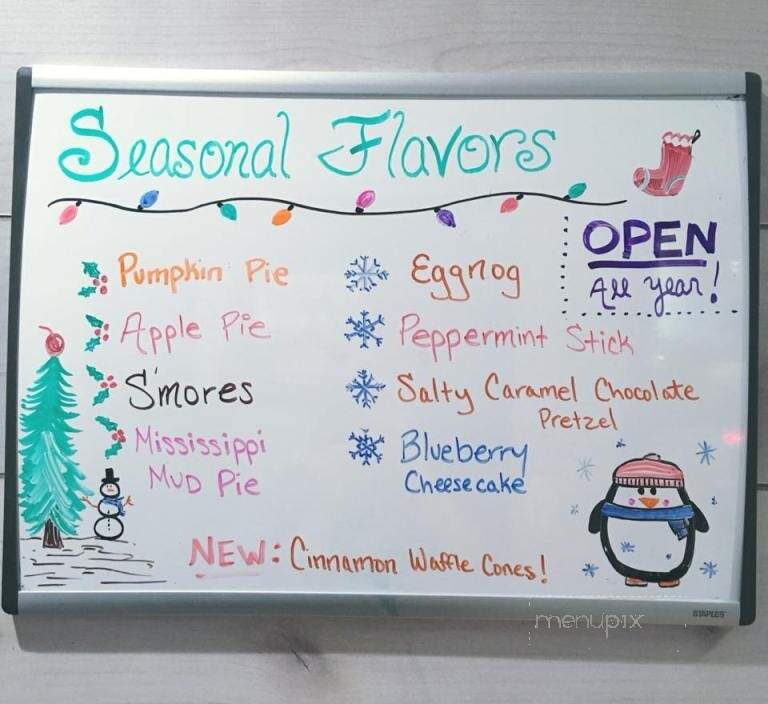 Seasonal Flavors
OPEN
All year!
Pumpkin Pie
Apple Pie
S'mores
Mississippi
Mud Pie
Eggnog
Peppermint Stick
Salty Caramel Chocolate
Pretzel
Blueberry
Cheesecake
NEW: Cinnamon Waffle Cones!
STAPLES
menupix